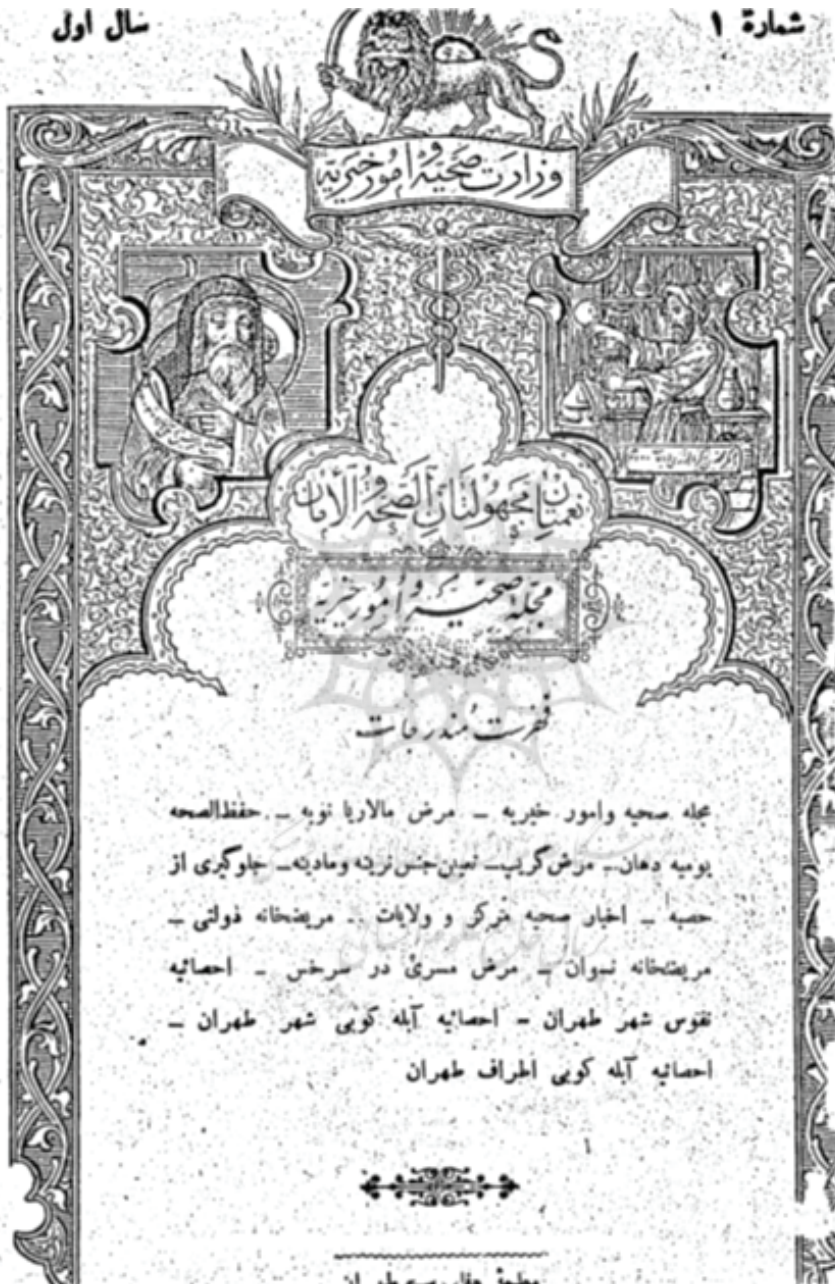 شمارهٔ ۱
سال اول
وزارت صحیه و امور خیریه
نعمتان مجهولتان الصحة و الأمان
مجلهٔ صحیه و امور خیریه
فهرست مندرجات
مجله صحیه وامور خیریه – مرض مالاریا نوبه – حفظ‌الصحه
یومیه دهان – مرض گریپ – تعیین جنس نرینه ومادینه – جلوگیری از
حصبه – اخبار صحیه مرکز و ولایات – مریضخانه دولتی –
مریضخانه نسوان – مرض مسری در سرخس – احصائیه
نفوس شهر طهران – احصائیه آبله کوبی شهر طهران –
احصائیه آبله کوبی اطراف طهران